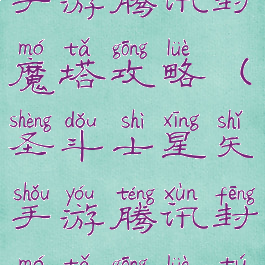 手游腾讯封
mó tǎ gōng lüè
魔塔攻略（
shèng dǒu shì xīng shǐ
圣斗士星矢
shǒu yóu téng xùn fēng
手游腾讯封
mó tǎ gōng lüè